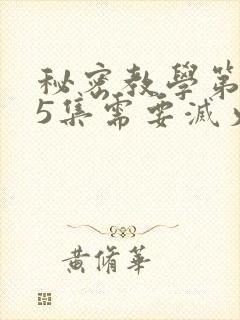 秘密教學第
5集需要滅
黃脩華